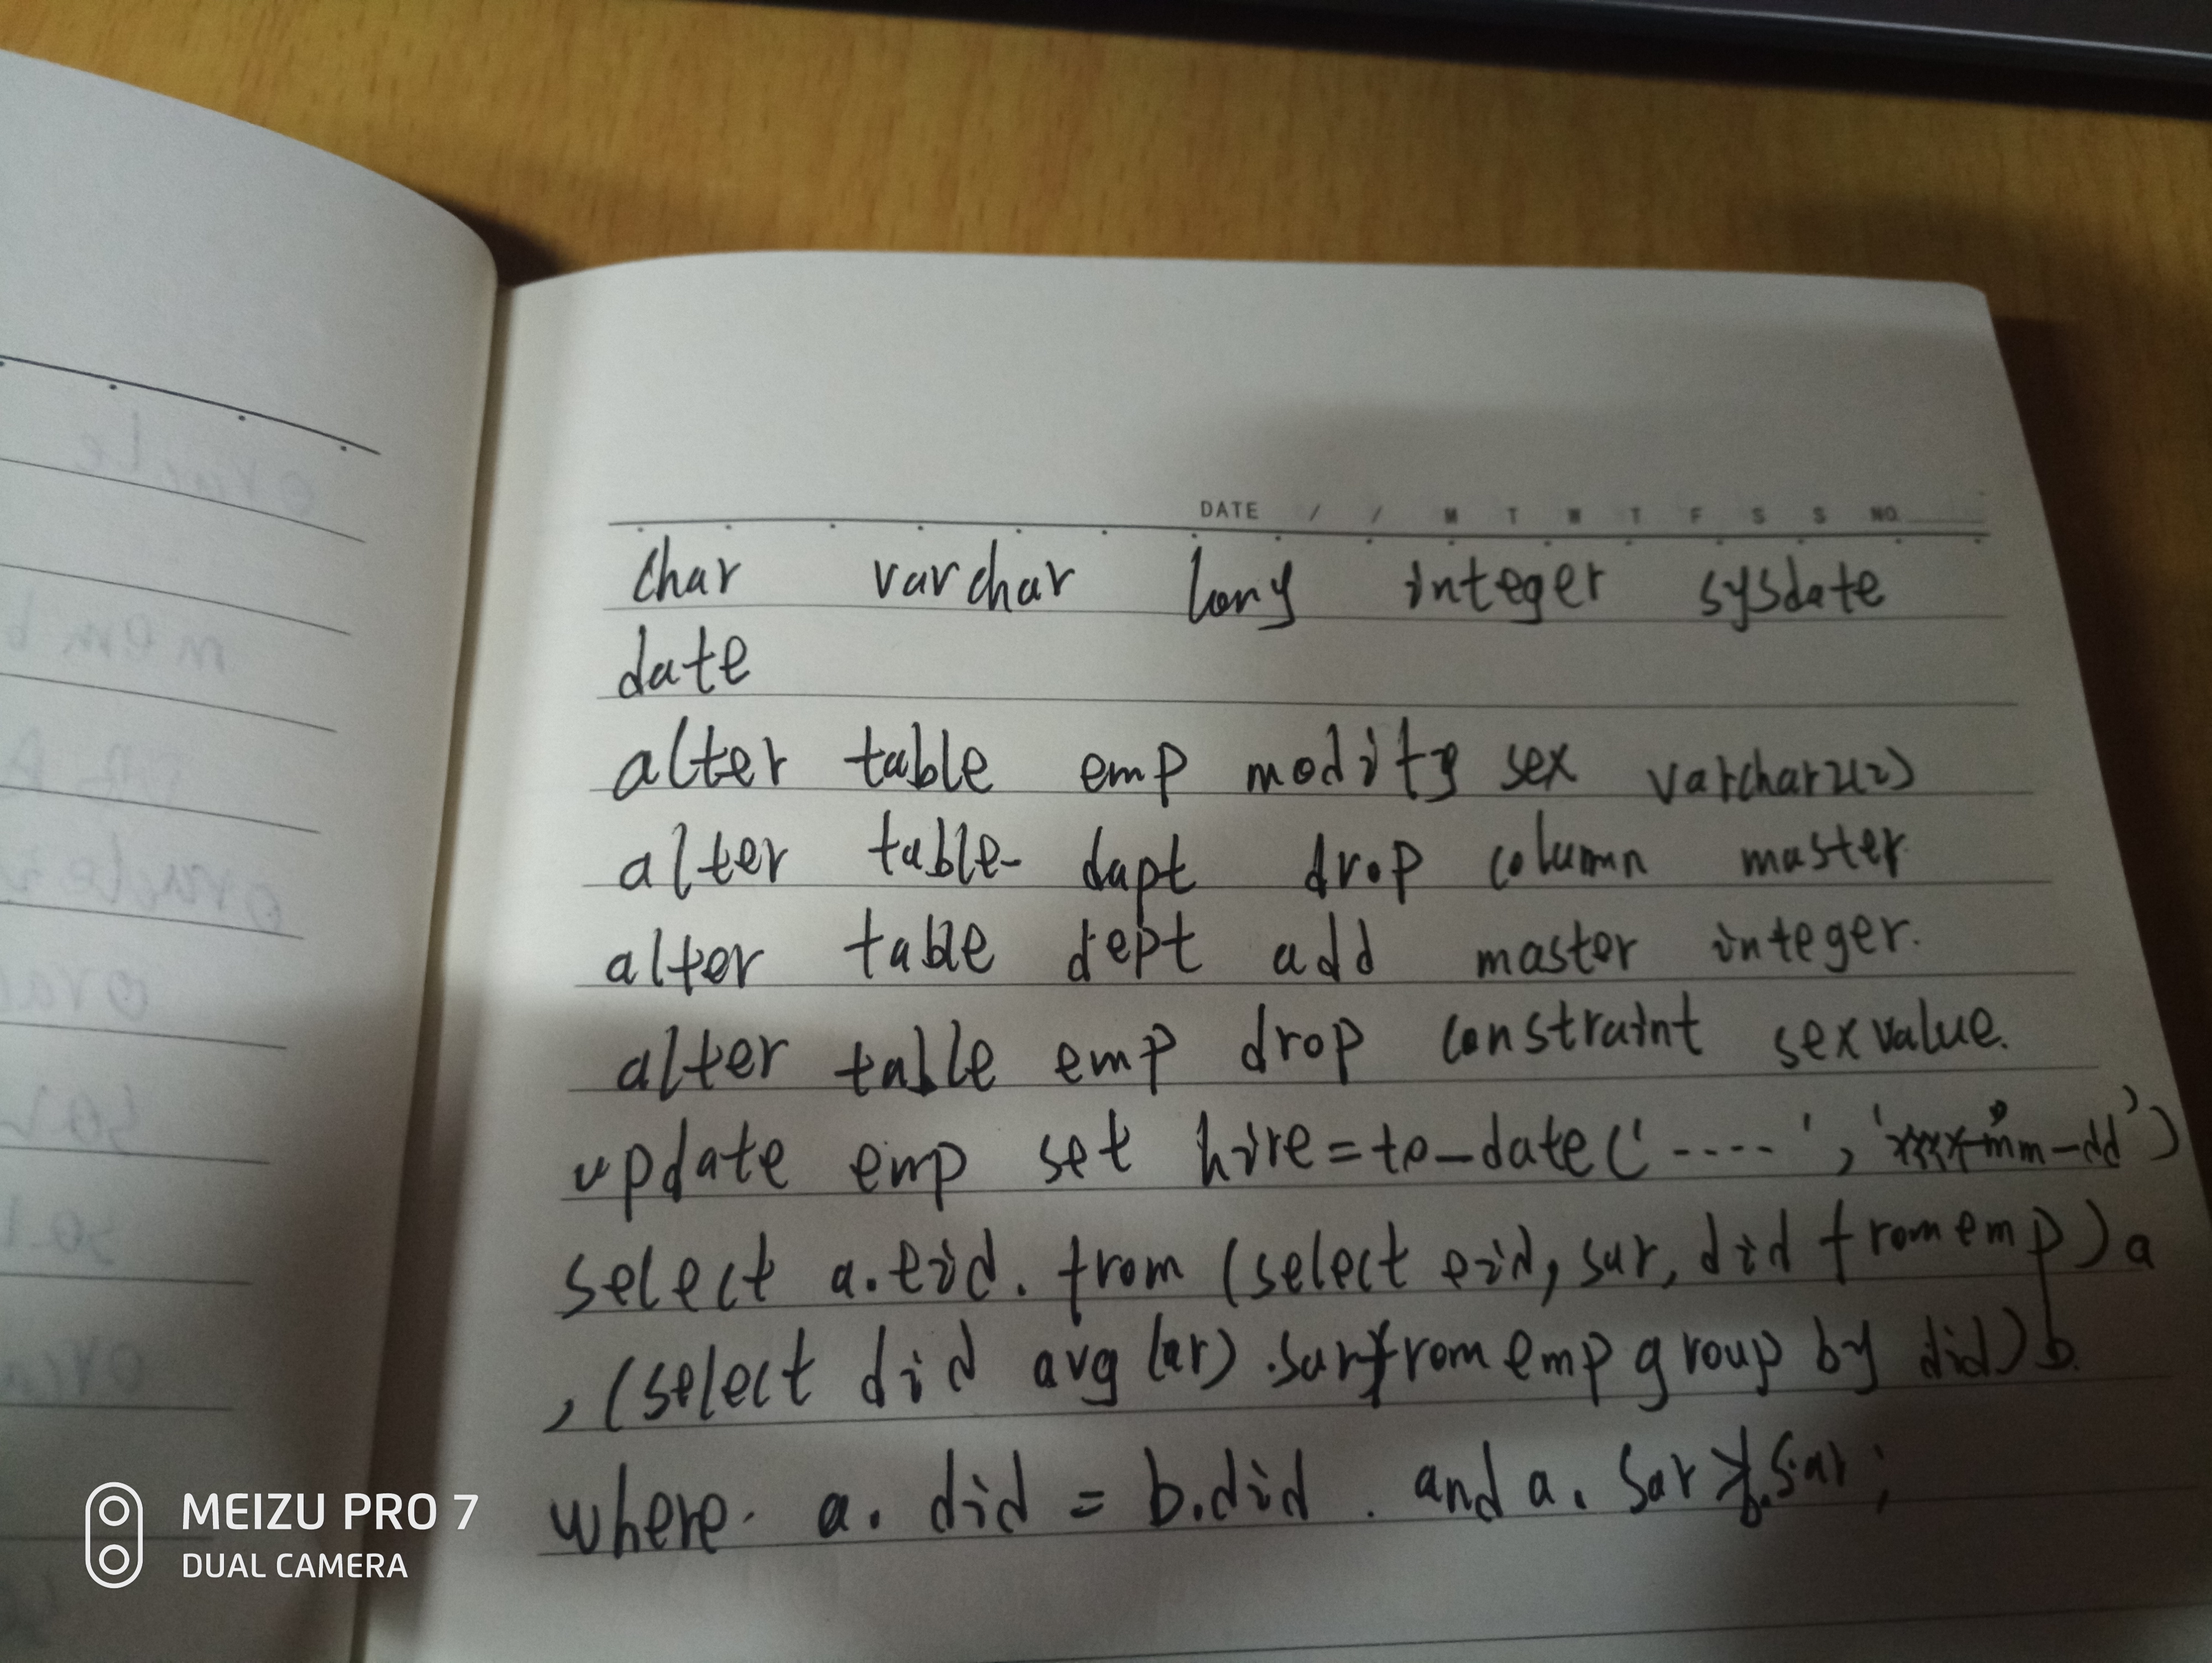 DATE / / M T W T F S S NO.
char varchar long integer sysdate
date
alter table emp modify sex varchar2(2)
alter table dapt drop column master
alter table dept add master integer.
alter table emp drop constraint sexvalue.
update emp set hire=to_date('----','xxxx-mm-dd')
select a.eid. from (select eid, sar, did from emp) a
,(select did avg (ar) .sar from emp group by did) b.
where. a. did = b.did . and a. sar > b.sar;
MEIZU PRO 7
DUAL CAMERA